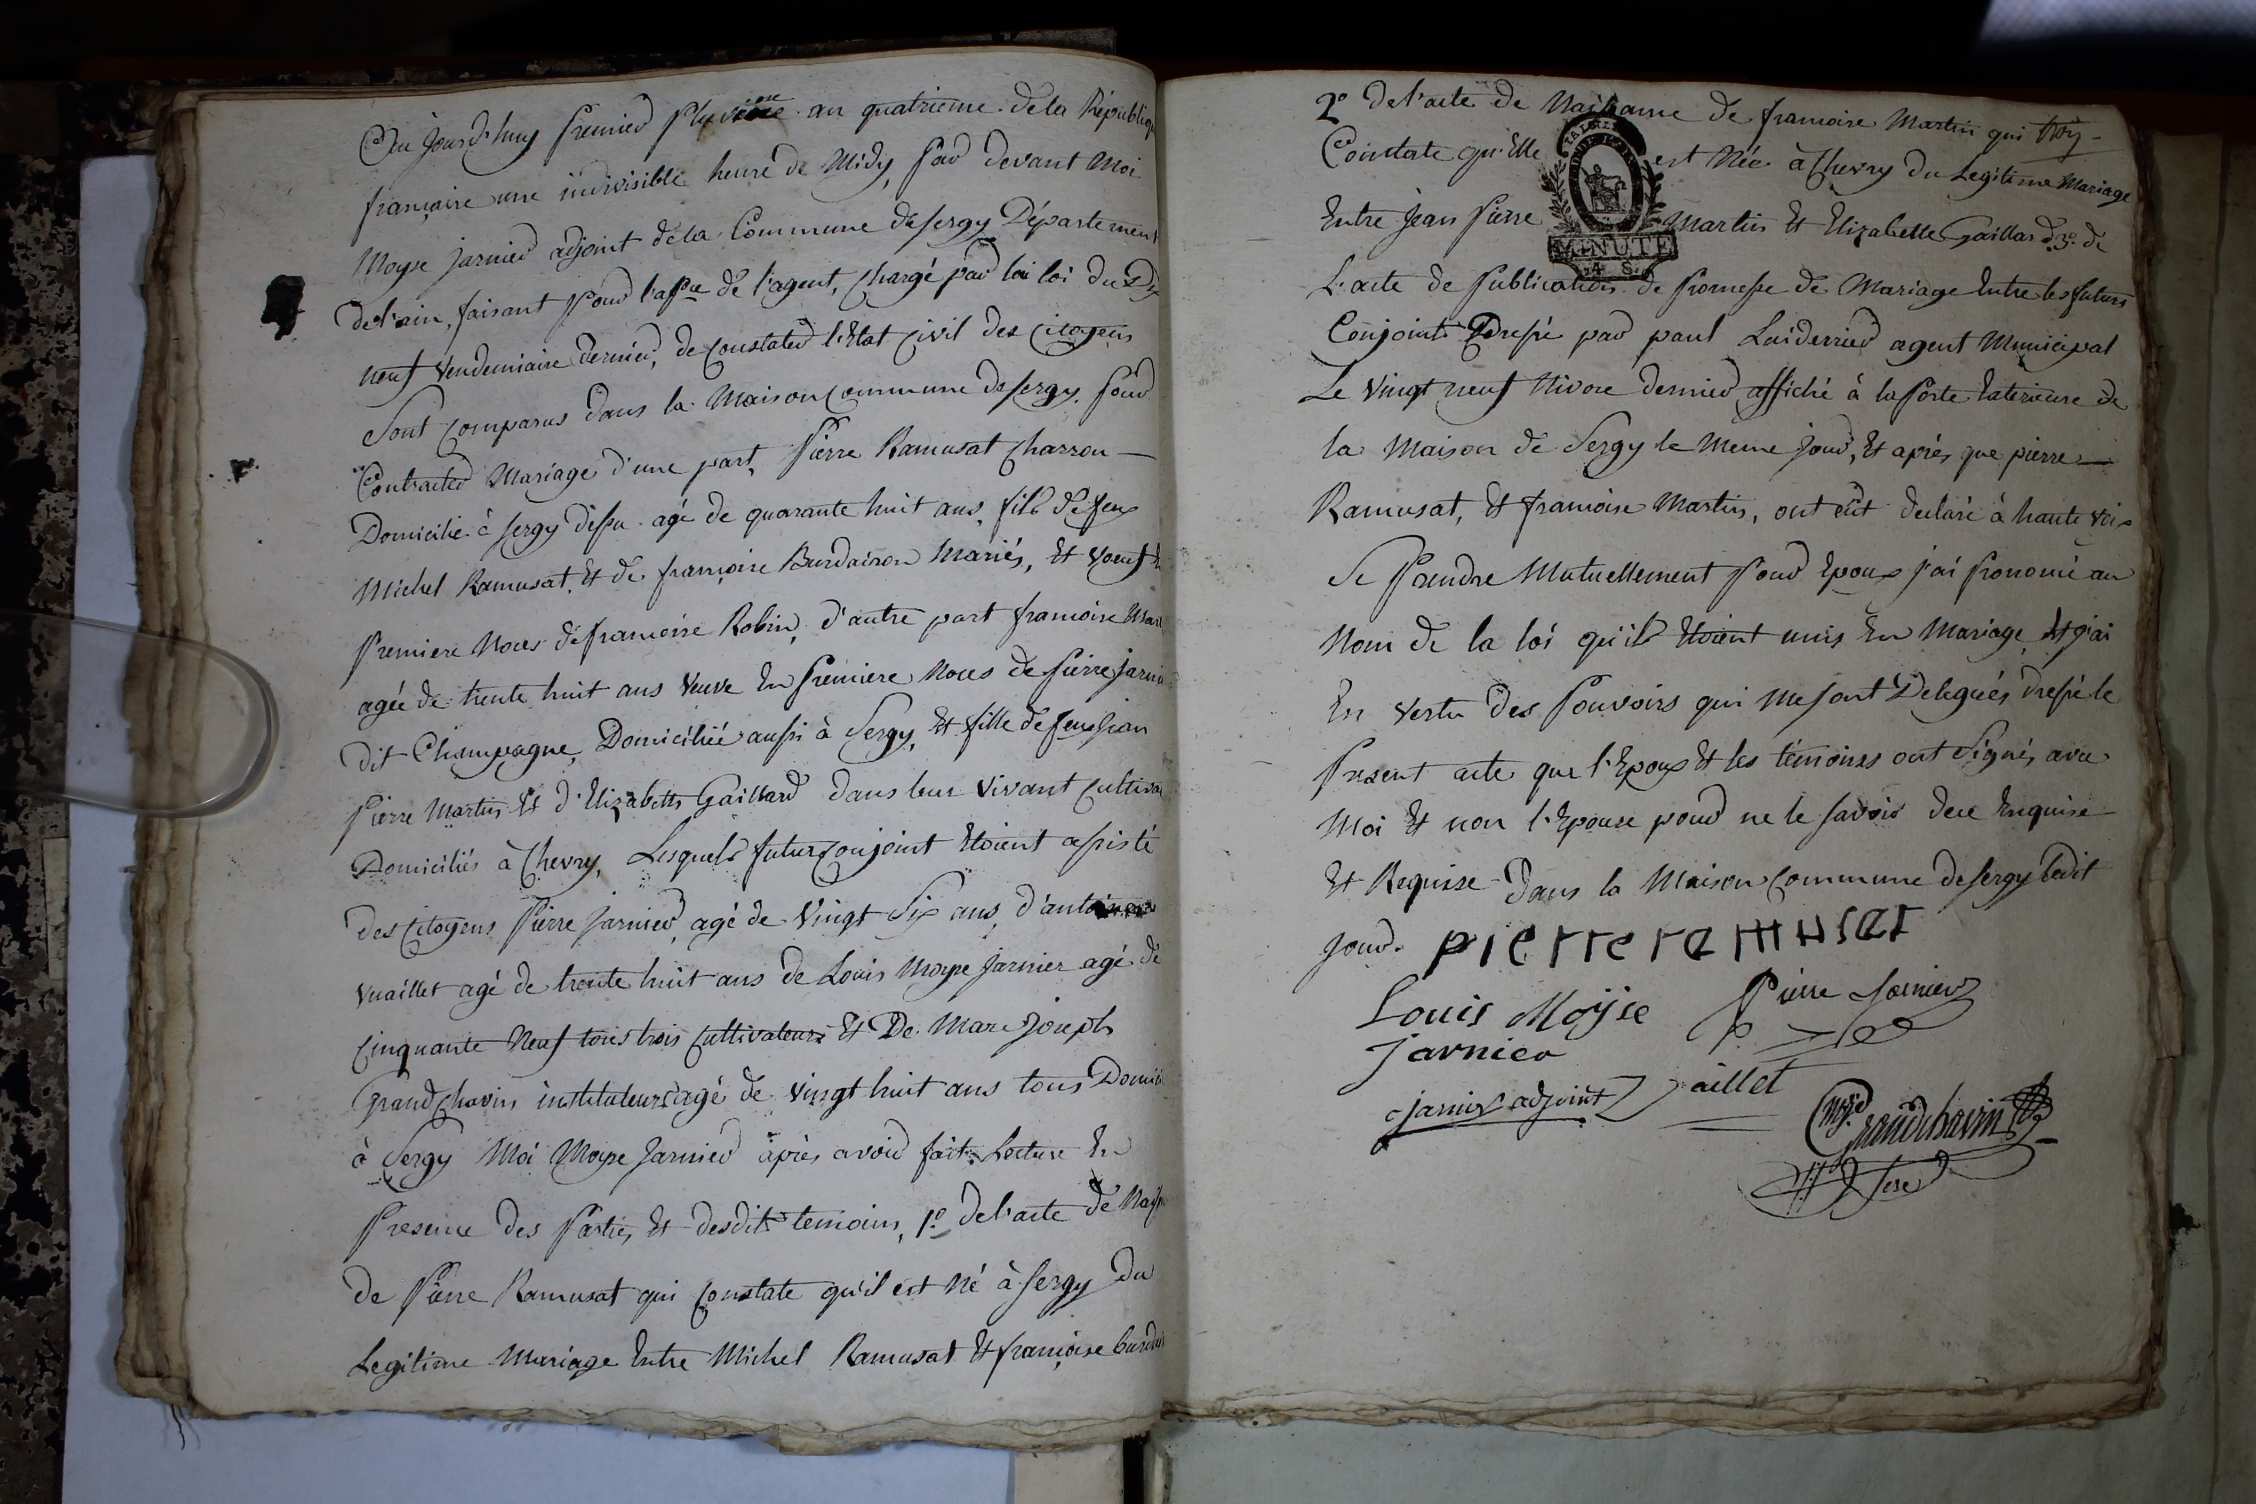 Ou Jourd'huy Premier Pluviose an quatrieme de la Républiq
française une indivisible heure de Midy, Par devant Moi
Moyse jarnier adjoint de la Commune de sergy Département
de l'ain, faisant Pour l'apce de l'agent, Chargé par la loi du Dix
neuf Vendemiaire dernier, de Constater l'Etat Civil des Citoyens
Sont comparus dans la Maison Commune de sergy, Pour
Contracter Mariage d'une part, Pierre Ramusat Charron
Domicilié à sergy agé de quarante huit ans, fils de feu
Michel Ramusat, Et de françoise Burdairon Mariés, Et voeuf En
Premiere Noces de françoise Robin, d'autre part françoise Mart
agée de trente huit ans Veuve En Premiere Noces de Pierre Jarni
dit Champagne, Domiciliée aussi à Sergy, Et fille de feu Jean
Pierre Martin Et d'Elizabeth Gaillard dans leur Vivant Cultiva
Domiciliés à Chevry, Lesquels futur Conjoint Etoient assisté
des Citoyens Pierre Jarnier, agé de Vingt Six ans, d'antoine
Vuaillet agé de trente huit ans de Louis Moyse Jarnier agé de
Cinquante Neuf tous trois Cultivateurs Et De Marc Joseph
Grandchavin instituteur agé de vingt huit ans tous Domici
à Sergy Moi Moyse Jarnier après avoir fait Lecture En
Presence des Parties Et desdits temoins, 1.º de l'acte de Naiss
de Pierre Ramusat qui Constate qu'il est Né à Sergy Du
Legitime Mariage Entre Michel Ramusat Et françoise Burdai
2º de l'acte de Naissance de francoise Martin qui
Constate qu'Elle est Née à Chevry du Legitime Mariage
Entre Jean Pierre Martin Et Elizabette Gaillard 3º de
MINUTE
4 S.
L'acte de Publication de Promesse de Mariage Entre les futurs
Conjoints Dressé par paul Laiderrier agent Municipal
Le Vingt neuf Nivose dernier affiché à la Porte Exterieure de
la Maison de Sergy le Meme jour, Et après que pierre
Ramusat, Et françoise Martin, ont eût declaré à haute voix
Se Prendre Mutuellement Pour Epoux j'ai Prononcé au
Nom de la loi qu'ils Etoient unis En Mariage, Et j'ai
En vertu des Pouvoirs qui me sont Delegués dressé le
Present acte que l'Epoux Et les témoins ont Signés avec
Moi Et non l'Epouse pour ne le savoir dece Enquise
Et Requise Dans la Maison Commune de sergy ledit
jour. pierreremusat
Louis Moÿse Pierre Jarnier
Jarnier
Jarnier adjoint Vaillet
Grandchavin